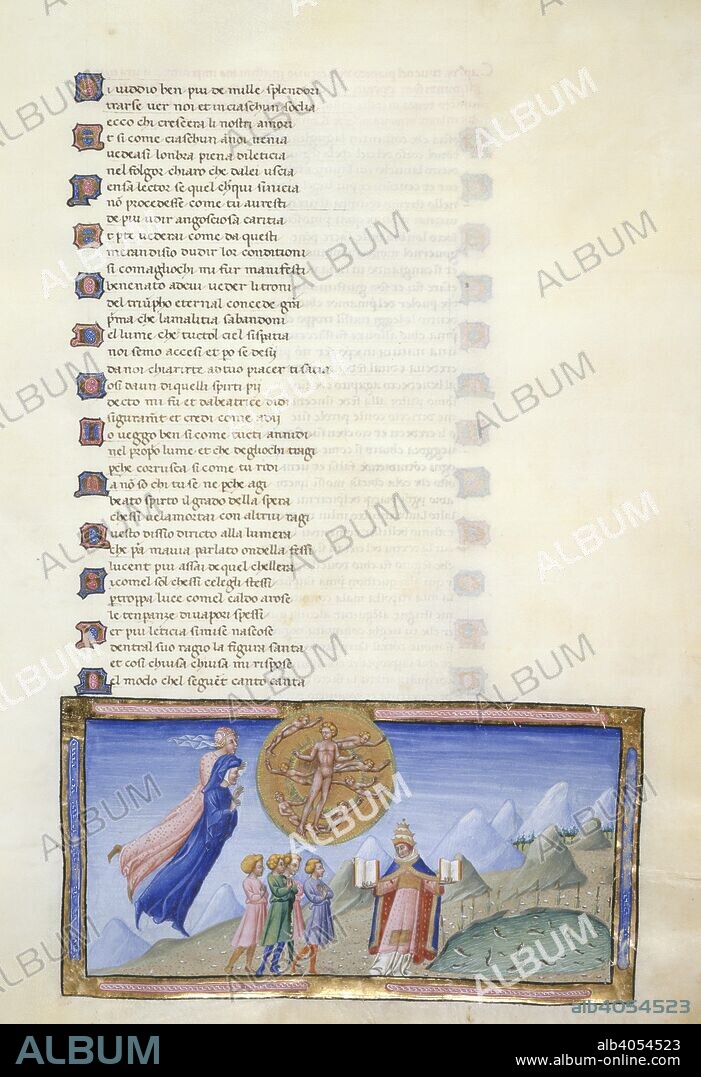 Si viddio ben piu de mille splendori
trarse ver noi et inciaschun sodia
ecco chi crescera li nostri amori
Et si come ciaschun anoi venia
vedeasi lonbra piena dileticia
nel folgor chiaro che dalei uscia
Pensa lector se quel chqui sinicia
nō procedesse come tu auresti
de piu udir angosciosa caritia
Et p te vederai come da questi
mera ndisio dudir lor conditioni
si comagliochi mi fur manifesti
O benenato adcui veder litroni
del triūpho eternal concede grā
pma che lamalitia sabandoni
Del lume che tuctol ciel sispatia
noi semo accesi et po se desii
da noi chiarirte ad tuo piacer ti satia
Cosi da un di quelli spirti pii
decto mi fu et dabeatrice di di
siguramt et credi come adii
Io veggo ben si come tucti annidi
nel propo lume et che degliochi tragi
pche corrusca si come tu ridi
Ma nō so chi tu se ne pche agi
beato spirto il grado della spera
chessi velamortai con altrui ragi
Questo dissio diricto alla lumera
che pa mavia parlato ondella fessi
lucent piu assai de quel chellera
Si comel sol chessi celegli stessi
p troppa luce comel caldo arose
le tenpanze di vapori spessi
Per piu leticia simise nascose
dentral suo ragio la figura santa
et cosi chiusa chiusa mi rispose
El modo chel seguēt canto canta
ALBUM
alb4054523
ALBUM
alb4054523
www.album-online.com